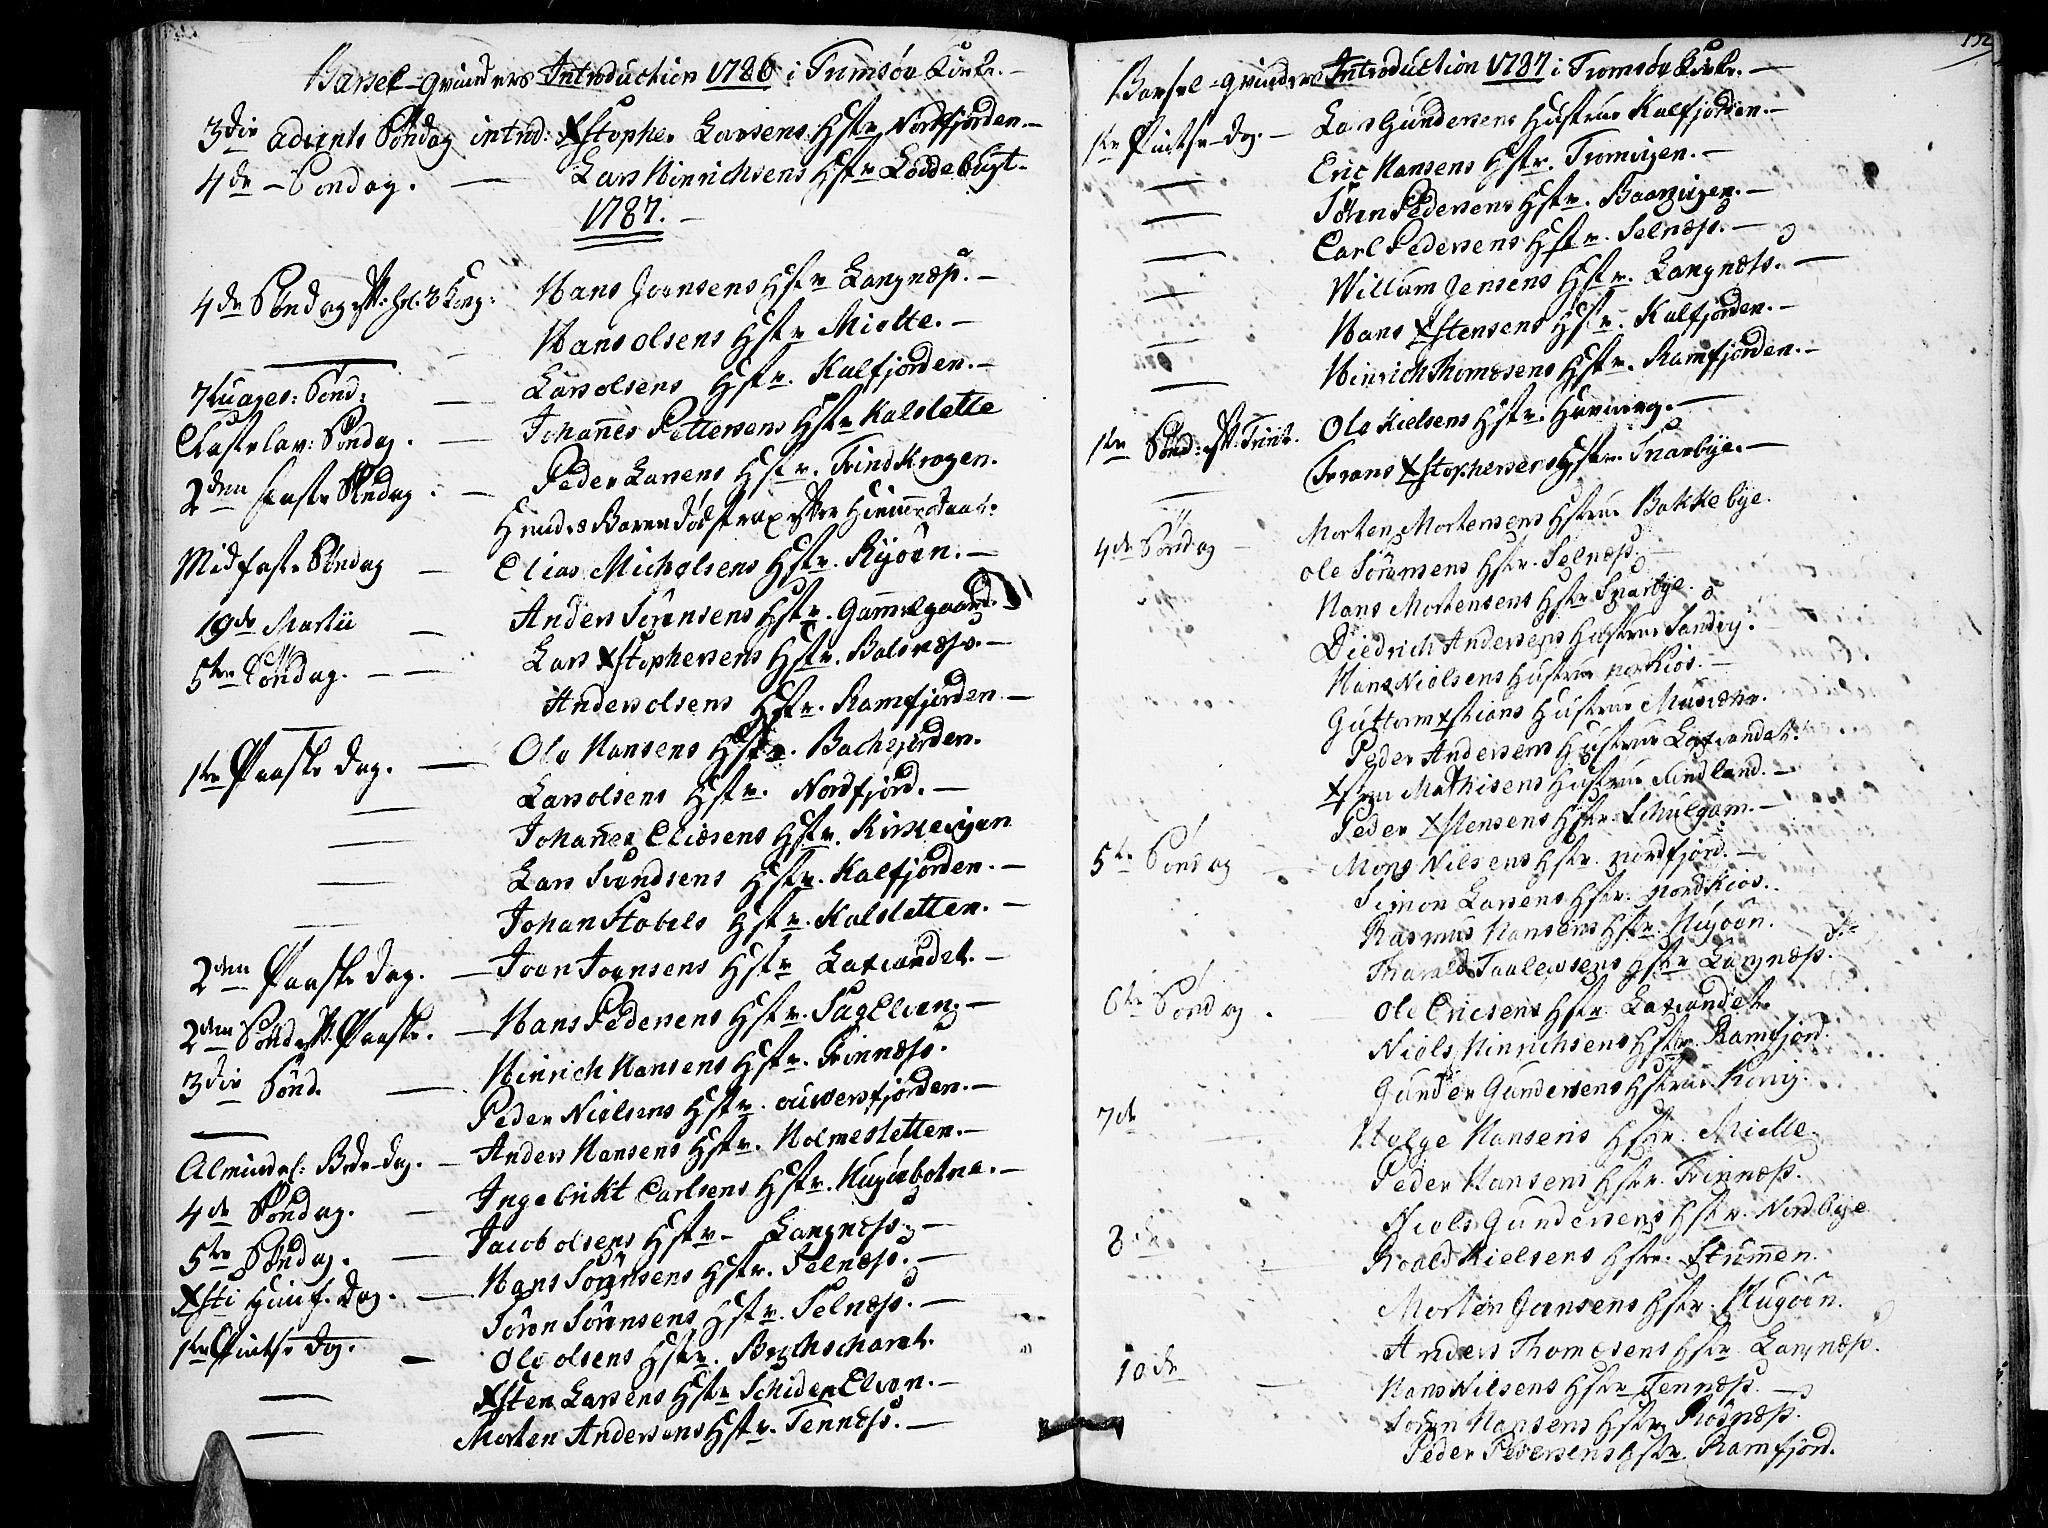 Barsel-qvinders Introduction 1786 i Tromsøe Kirke.—
3die Advents Søndag introd: Xstopher Larsens Hstr Nordfjorden.—
4de — Søndag. — Lars Hinrichsens Hstr Loddebugt.
1787.—
4de Søndag eft. hel. 3 Kong: Hans Joensens Hstr Langnæss.—
— Hans Olsens Hstr Mielle.—
7kuages: Sønd: — Lars Olsens Hstr. Kalfjorden.—
Fastelav: Søndag. — Johannes Pettersens Hstr Kalslette
2den Faste Søndag. — Peder Larsens Hstr. Trindkrogen.
Hendes Barn døde strax efter
Midfaste Søndag — Elias Micholsens Hstr. Ryøen.—
19de Martii — Anders Sørensens Hstr. Gammelgaard.
5te Søndag. — — Lars Xstophersens Hstr. Balsnæss.—
— Anders Olsens Hstr. Ramfjorden.—
1ste Paaske Dag. — Ole Hansens Hstr. Bachejorden.
— Lars Olsens Hstr. Nordfjord.—
— Johannes Eliasens Hstr. Kirkevigen
— Lars Svendsens Hstr. Kalfjorden.—
— Johan Stabels Hstr. Kalsletten.—
2den Paaske Dag. — Joen Joensens Hstr Laxvandet.—
2den Sønd. eft. Paaske. — Hans Pedersens Hstr. Sagelven.—
3die Sønd. — Hinrich Hansens Hstr. Finnæss.
— Peder Nielsens Hstr. Ouwersfjorden.—
Almindel: Bede-Dag. — Anders Hansens Hstr. Holmesletten.—
4de Søndag. — Ingebrikt Carlsens Hstr. Hugøebotne.—
5te Søndag. — Jacob Olsens Hstr. Langnæss.—
Xsti Himf. Dag. — Hans Sørensens Hstr. Selnæss.—
1ste Pintse Dag. Søren Sørensens Hstr. Selnæss.—
— Ole Olsens Hstr.
— Xsten Larsens Hstr Schiden Elven.—
— Morten Andersens Hstr. Tennæss.—
132
Barsel-qvinders Introduction 1787 i Tromsøe Kirke.—
1ste Pintse-Dag.— Lars Gundersens Hustrue Kalfjorden.—
— Eric Hansens Hstr. Tromvigen.—
— John Pedersens Hstr. Baarvigen.—
— Carl Pedersens Hstr. Selnæss.—
— Willum Jensens Hstr. Langnæss.—
— Hans Xstensens Hstr. Kalfjorden.—
— Hinrich Thomæsens Hstr. Ramfjorden.—
1ste Sønd: eft: Trinit. Ole Kielsens Hstr.
— Frans Xstophersens Hstr. Snarbye.—
4de Søndag — Morten Mortensens Hstrue Bakkebye.
Ole Sørensens Hstr. Selnæss.—
Hans Mortensens Hstr Snarbye.
Diedrich Andersens Hustrue Sandvig.
Hans Nielsens Hustrue Nordkios.—
Guttorm Xstians Hustrue Musvær.
Peder Andersens Hustrue Laxvandet.
Mathisens Hustrue Findland.—
Peder Xstensens Hstr. Schulgam.—
5te Søndag — Mons Nilsens Hstr. Nordfjord.—
Simon Larsens Hstr. Nordkios.
Rasmus Hansens Hstr. Hugøen.
Tharald Taalevsens Hstr Langnæss.
6te Søndag. Ole Ericsens Hstr. Laxvandet.
Niels Hinrichsens Hstr. Ramfjord.
Gunder Gundersens Hstrue
7de Helge Hansens Hstr. Mielle.
Peder Hansens Hstr. Finnæss.
Niels Gundersens Hstr. Nordbye
8de — Roald Kielsens Hstr. Strømmen.
Morten Jensens Hstr. Hugøen.
Anders Thomesens Hstr. Langnæss.
10de — Hans Nilsens Hstr. Tennæss.—
Søren Hansens Hstr. Røsnæss.
Peder Pedersens Hstr. Ramfjord.